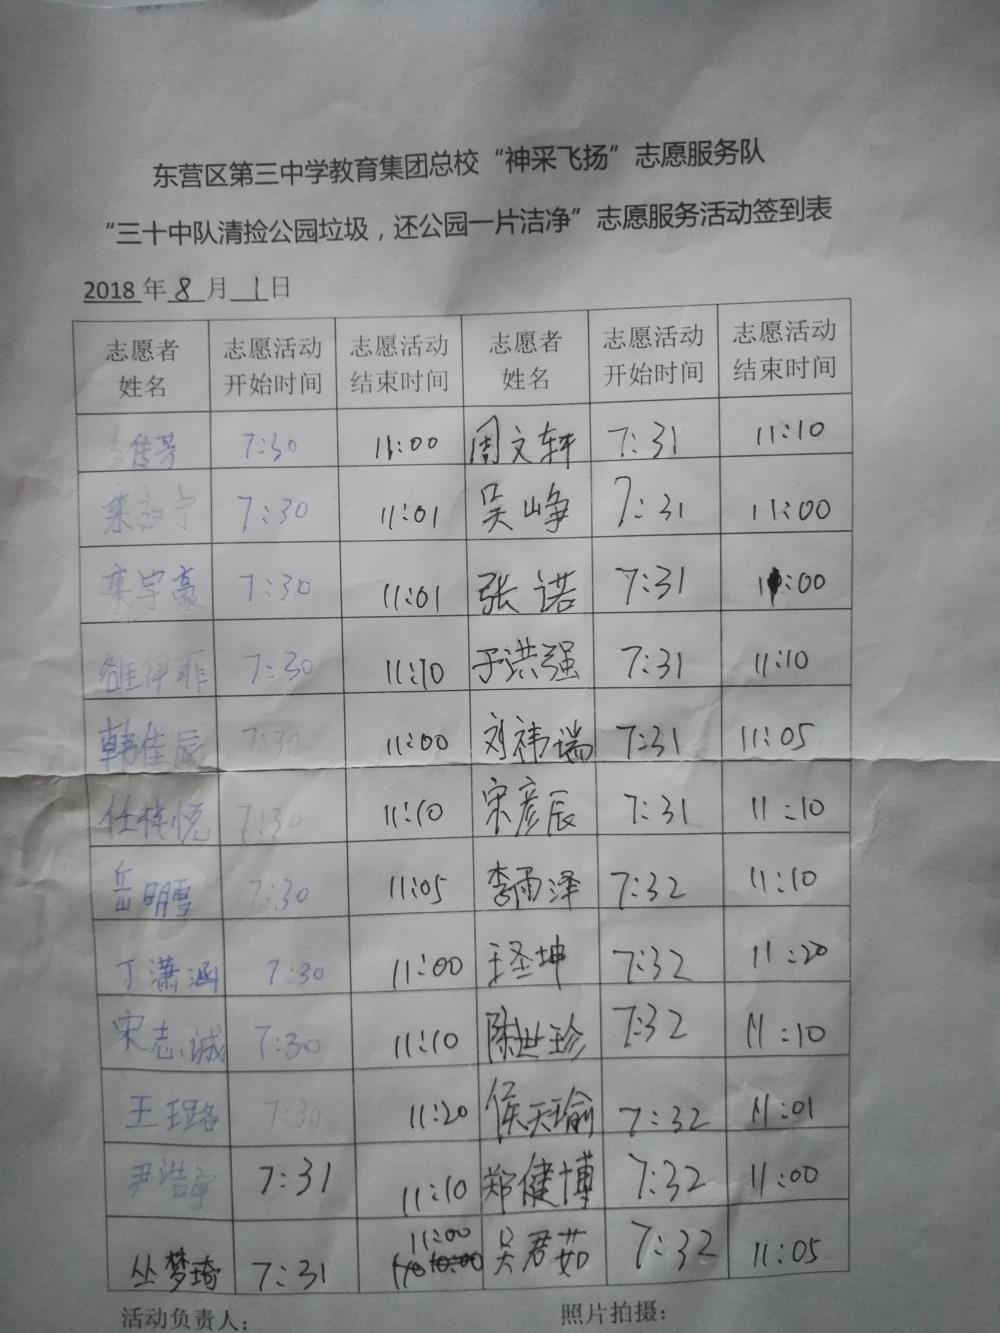 东营区第三中学教育集团总校“神采飞扬”志愿服务队
“三十中队清捡公园垃圾，还公园一片洁净”志愿服务活动签到表
2018年8月1日
志愿者姓名 志愿活动开始时间 志愿活动结束时间 志愿者姓名 志愿活动开始时间 志愿活动结束时间
7:30 11:00 周文轩 7:31 11:10
7:30 11:01 吴峥 7:31 11:00
栾宇豪 7:30 11:01 张诺 7:31 11:00
7:30 11:10 于洪强 7:31 11:10
韩佳辰 7:30 11:00 刘祎瑞 7:31 11:05
任梓悦 7:30 11:10 宋彦辰 7:31 11:10
岳明雪 7:30 11:05 李雨泽 7:32 11:10
丁潇涵 7:30 11:00 王圣坤 7:32 11:20
宋志诚 7:30 11:10 陈世珍 7:32 11:10
王珺路 7:30 11:20 侯天瑜 7:32 11:01
尹浩宇 7:31 11:10 郑健博 7:32 11:00
丛梦琦 7:31 11:00 吴君茹 7:32 11:05
活动负责人： 照片拍摄：